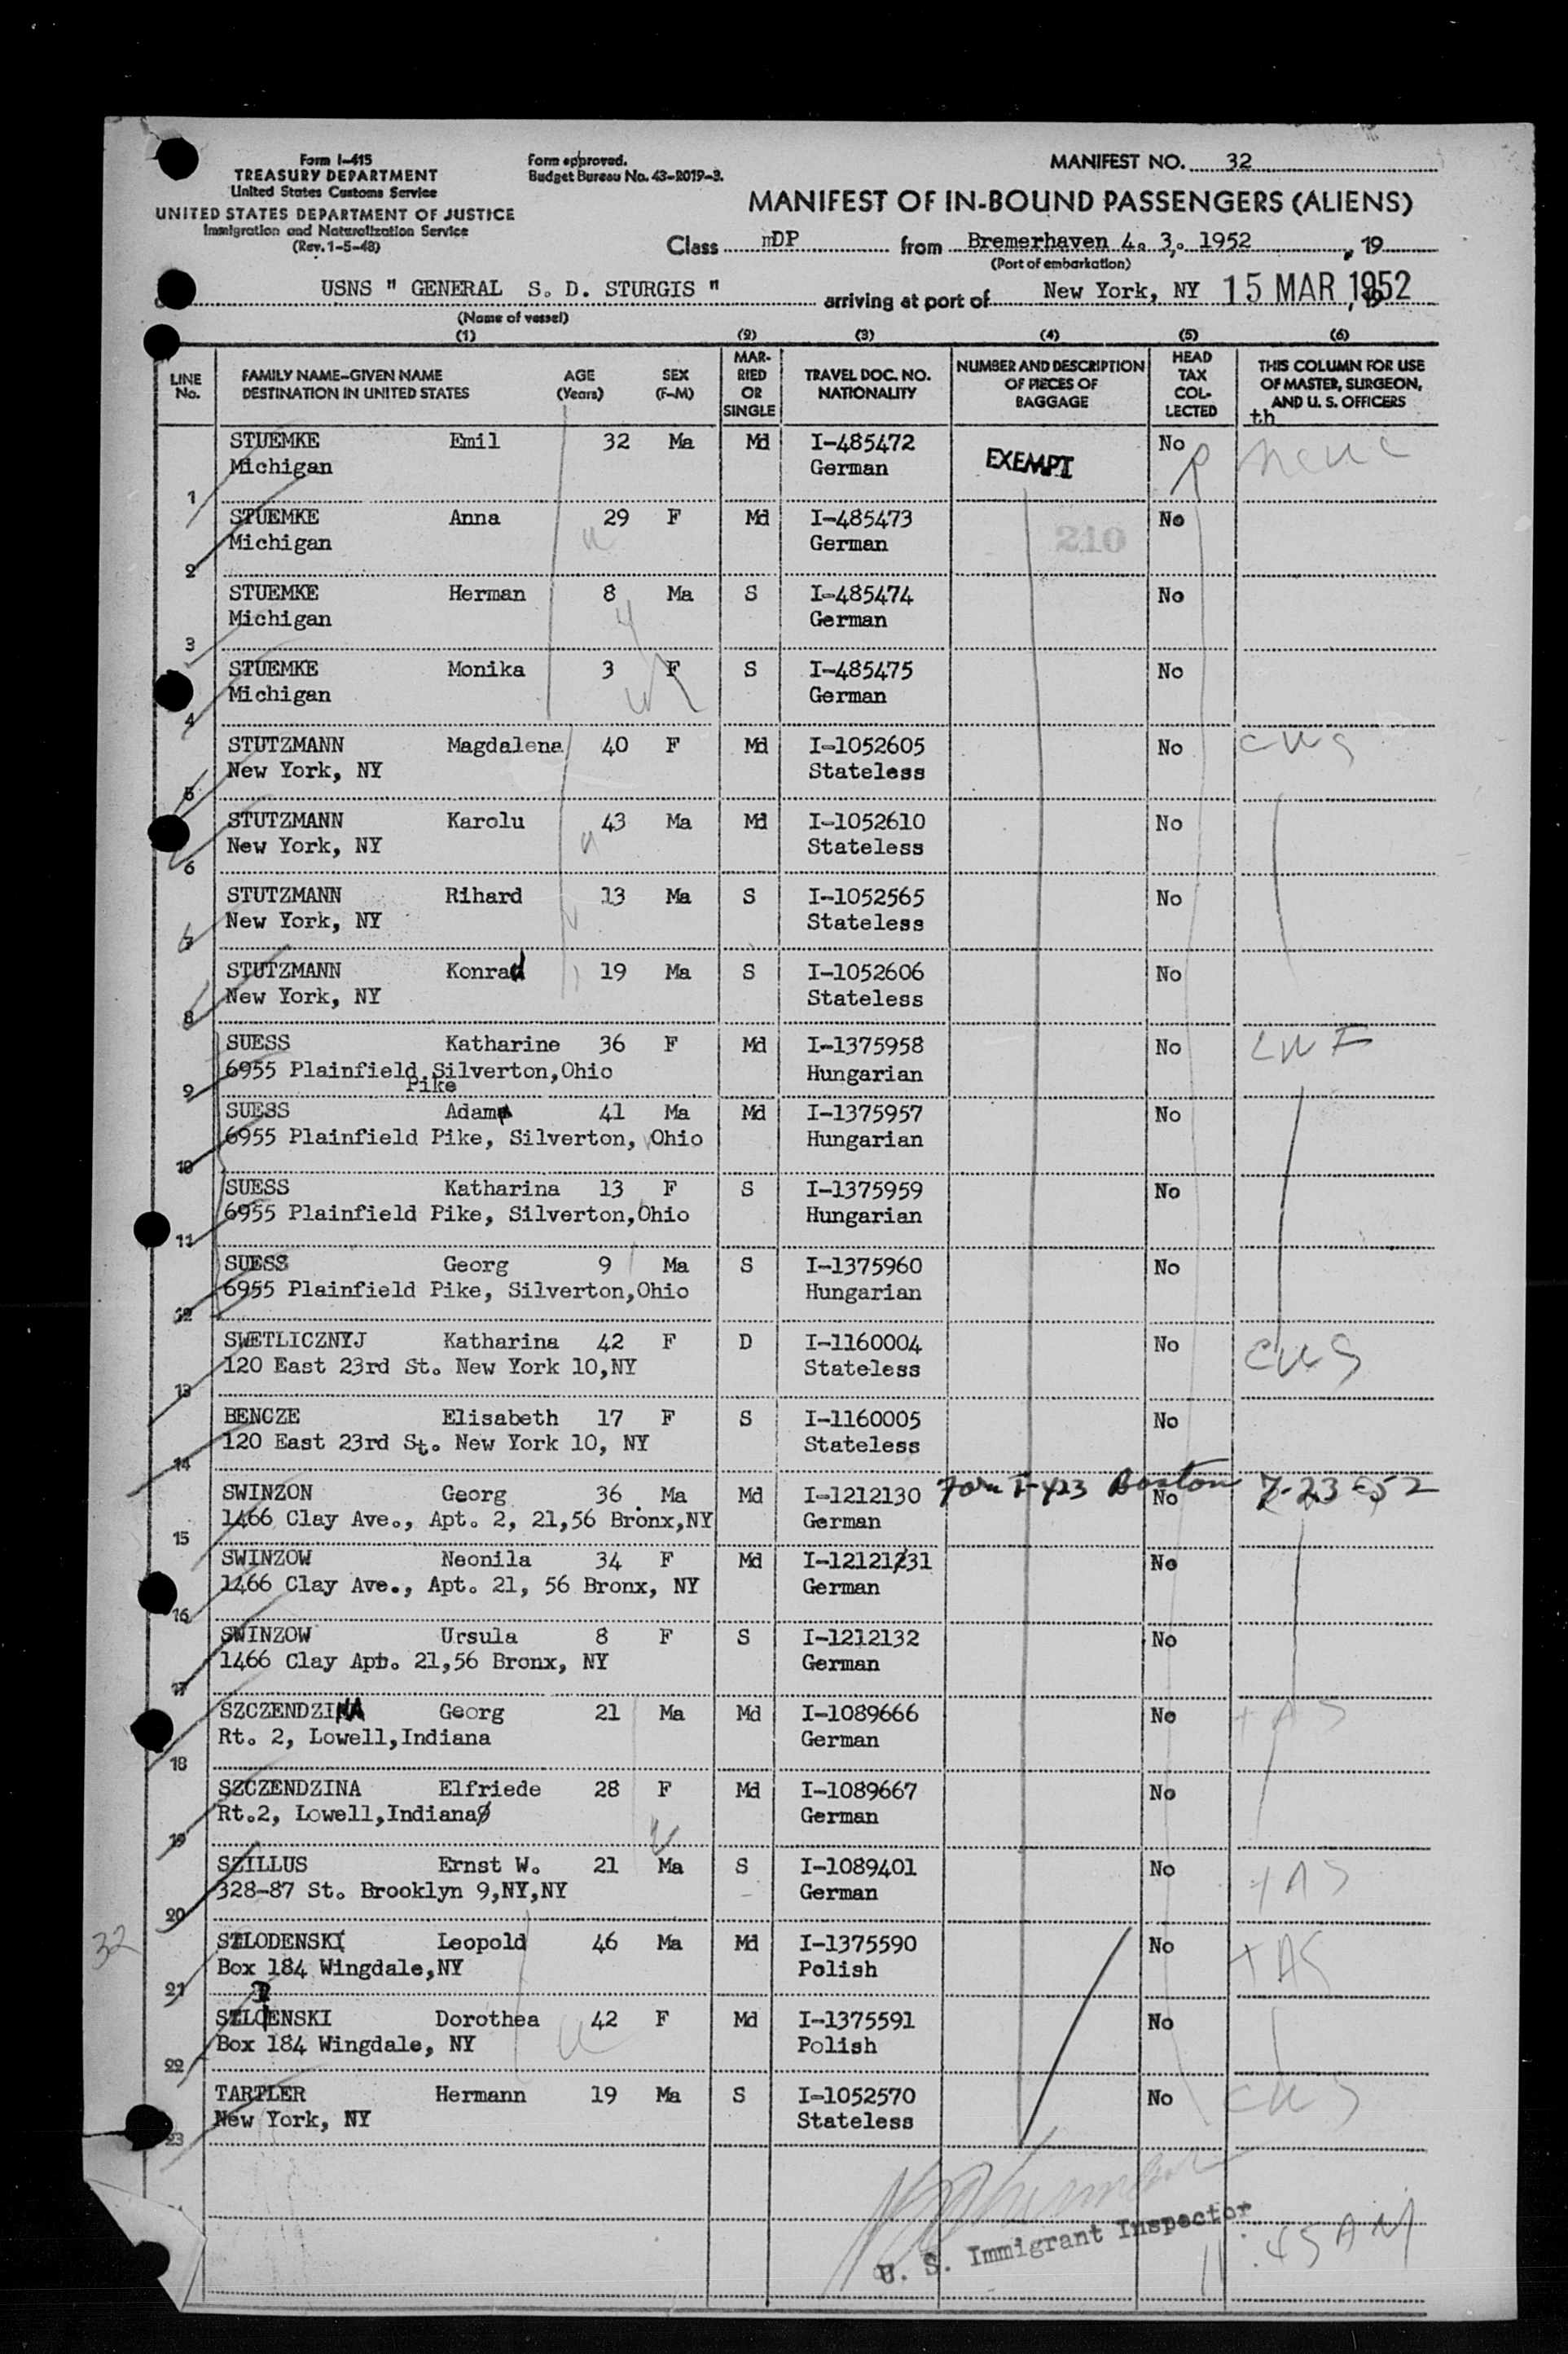 Form I-415
TREASURY DEPARTMENT
United States Customs Service
UNITED STATES DEPARTMENT OF JUSTICE
Immigration and Naturalization Service
(Rev. 1-5-48)
Form approved.
Budget Bureau No. 43-R019-3.
MANIFEST NO. 32
MANIFEST OF IN-BOUND PASSENGERS (ALIENS)
Class DP from Bremerhaven 4. 3. 1952, 19
(Port of embarkation)
USNS " GENERAL S. D. STURGIS " arriving at port of New York, NY 15 MAR 1952
(Name of vessel)
(1) (2) (3) (4) (5) (6)
LINE No. FAMILY NAME-GIVEN NAME DESTINATION IN UNITED STATES AGE (Years) SEX (F-M) MARRIED OR SINGLE TRAVEL DOC. NO. NATIONALITY NUMBER AND DESCRIPTION OF PIECES OF BAGGAGE HEAD TAX COLLECTED THIS COLUMN FOR USE OF MASTER, SURGEON, AND U. S. OFFICERS
th
STUEMKE Emil 32 Ma Md I-485472 EXEMPT No
Michigan German
1
STUEMKE Anna 29 F Md I-485473 No
Michigan German 210
2
STUEMKE Herman 8 Ma S I-485474 No
Michigan German
3
STUEMKE Monika 3 F S I-485475 No
Michigan German
4
STUTZMANN Magdalena 40 F Md I-1052605 No
New York, NY Stateless
5
STUTZMANN Karolu 43 Ma Md I-1052610 No
New York, NY Stateless
6
STUTZMANN Rihard 13 Ma S I-1052565 No
New York, NY Stateless
7
STUTZMANN Konrad 19 Ma S I-1052606 No
New York, NY Stateless
8
SUESS Katharine 36 F Md I-1375958 No
6955 Plainfield Silverton,Ohio Hungarian
Pike
9
SUESS Adam 41 Ma Md I-1375957 No
6955 Plainfield Pike, Silverton, Ohio Hungarian
10
SUESS Katharina 13 F S I-1375959 No
6955 Plainfield Pike, Silverton,Ohio Hungarian
11
SUESS Georg 9 Ma S I-1375960 No
6955 Plainfield Pike, Silverton,Ohio Hungarian
12
SWETLICZNYJ Katharina 42 F D I-1160004 No
120 East 23rd St. New York 10,NY Stateless
13
BENCZE Elisabeth 17 F S I-1160005 No
120 East 23rd St. New York 10, NY Stateless
14
SWINZON Georg 36 Ma Md I-1212130 Form I-423 Boston No 7-23-52
1466 Clay Ave., Apt. 2, 21,56 Bronx,NY German
15
SWINZOW Neonila 34 F Md I-1212131 No
1466 Clay Ave., Apt. 21, 56 Bronx, NY German
16
SWINZOW Ursula 8 F S I-1212132 No
1466 Clay Apt. 21,56 Bronx, NY German
17
SZCZENDZINA Georg 21 Ma Md I-1089666 No
Rt. 2, Lowell,Indiana German
18
SZCZENDZINA Elfriede 28 F Md I-1089667 No
Rt.2, Lowell,Indiana German
19
SZILLUS Ernst W. 21 Ma S I-1089401 No
328-87 St. Brooklyn 9,NY,NY German
20
32
Leopold 46 Ma Md I-1375590 No
Box 184 Wingdale,NY Polish
21
Dorothea 42 F Md I-1375591 No
Box 184 Wingdale, NY Polish
22
TARTLER Hermann 19 Ma S I-1052570 No
New York, NY Stateless
23
U. S. Immigrant Inspector
11:45 AM